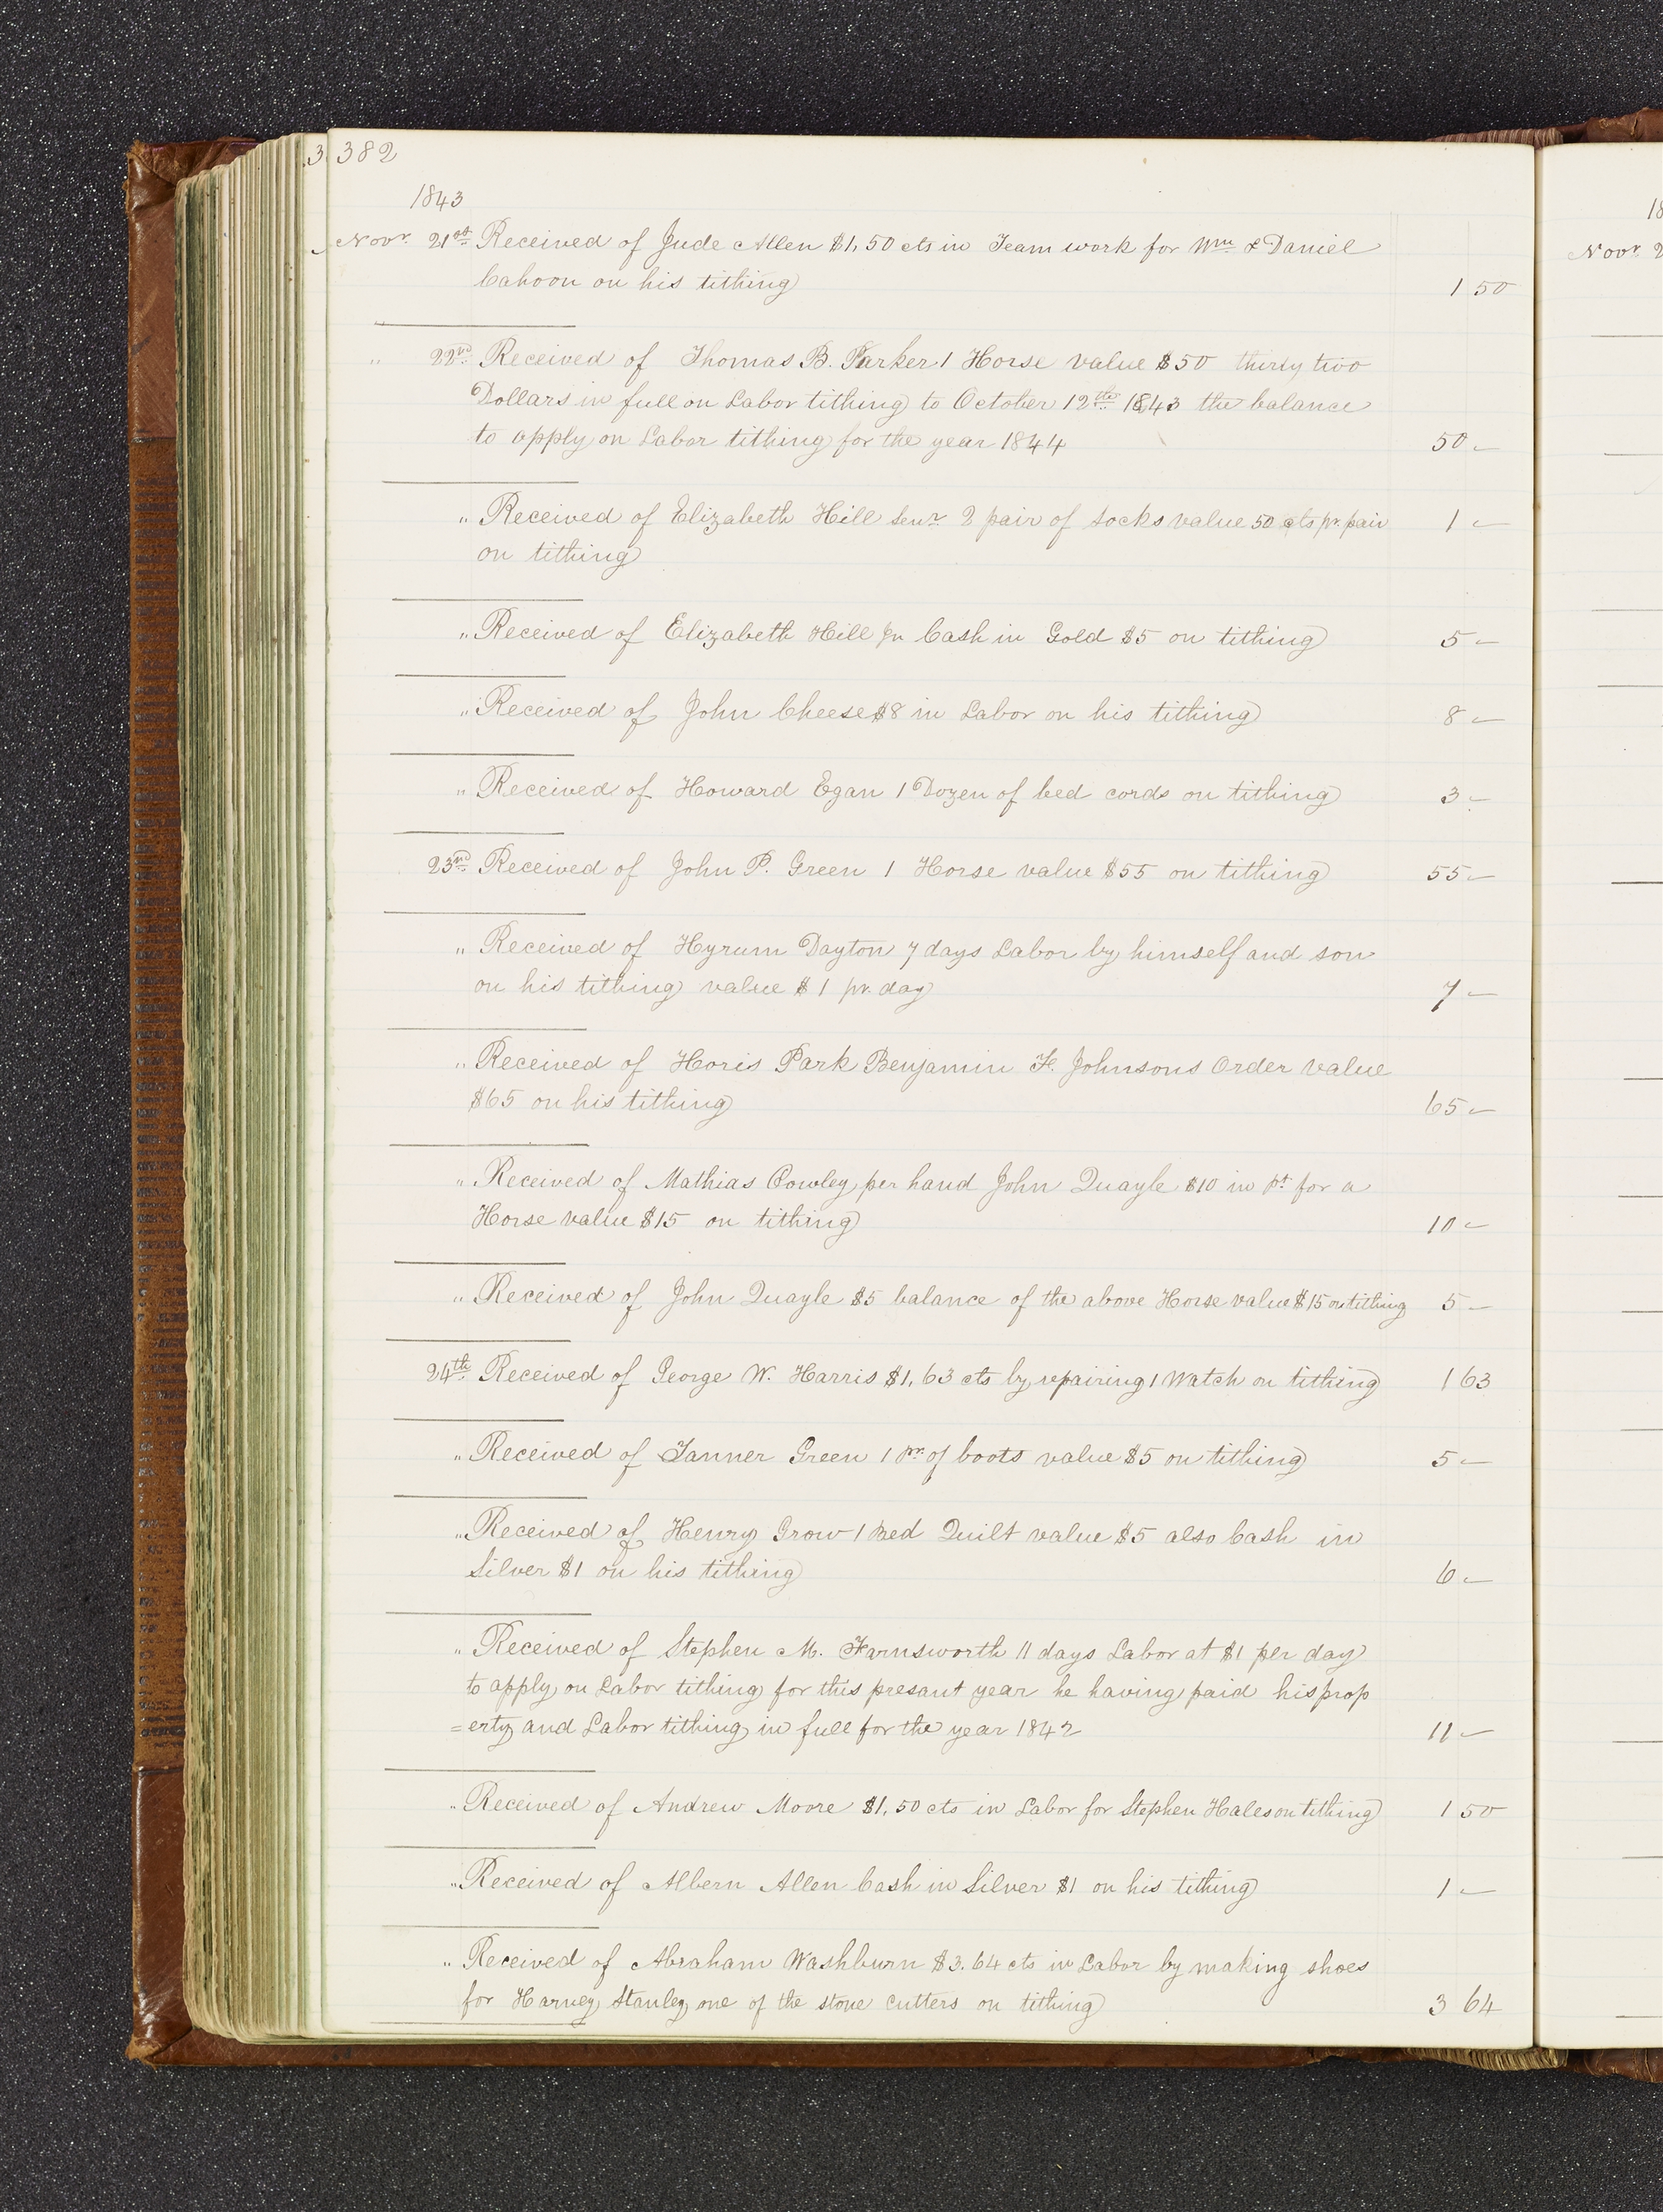 3 382
1843
Novr. 21st Received of Jude Allen $1,50 cts in Team work for Wm & Daniel
Cahoon on his tithing 1 50
" 22nd Received of Thomas B. Parker 1 Horse value $50 thirty two
Dollars in full on Labor tithing to October 12th 1843 the balance
to apply on Labor tithing for the year 1844 50 -
" Received of Elizabeth Hill Senr 2 pair of socks value 50 cts pr. pair 1 -
on tithing
" Received of Elizabeth Hill Jn Cash in Gold $5 on tithing 5 -
" Received of John Cheese $8 in Labor on his tithing 8 -
" Received of Howard Egan 1 Dozen of bed cords on tithing 3 -
23rd Received of John P. Green 1 Horse value $55 on tithing 55 -
" Received of Hyrum Dayton 7 days Labor by himself and son
on his tithing value $1 pr. day 7 -
" Received of Horis Park Benjamin F. Johnsons Order value
$65 on his tithing 65 -
" Received of Mathias Cowley per hand John Quayle $10 in pt for a
Horse value $15 on tithing 10 -
" Received of John Quayle $5 balance of the above Horse value $15 on tithing 5 -
24th Received of George W. Harris $1,63 cts by repairing 1 Watch on tithing 1 63
" Received of Tanner Green 1 pr. of boots value $5 on tithing 5 -
" Received of Henry Grow 1 Bed Quilt value $5 also Cash in
Silver $1 on his tithing 6 -
" Received of Stephen M. Farnsworth 11 days Labor at $1 per day
to apply on Labor tithing for this presant year he having paid his prop
=erty and Labor tithing in full for the year 1842 11 -
" Received of Andrew Moore $1,50 cts in Labor for Stephen Hales on tithing 1 50
" Received of Albern Allen Cash in Silver $1 on his tithing 1 -
" Received of Abraham Washburn $3.64 cts in Labor by making shoes
for Harvey Stanley one of the stone cutters on tithing 3 64
18
Novr. 2